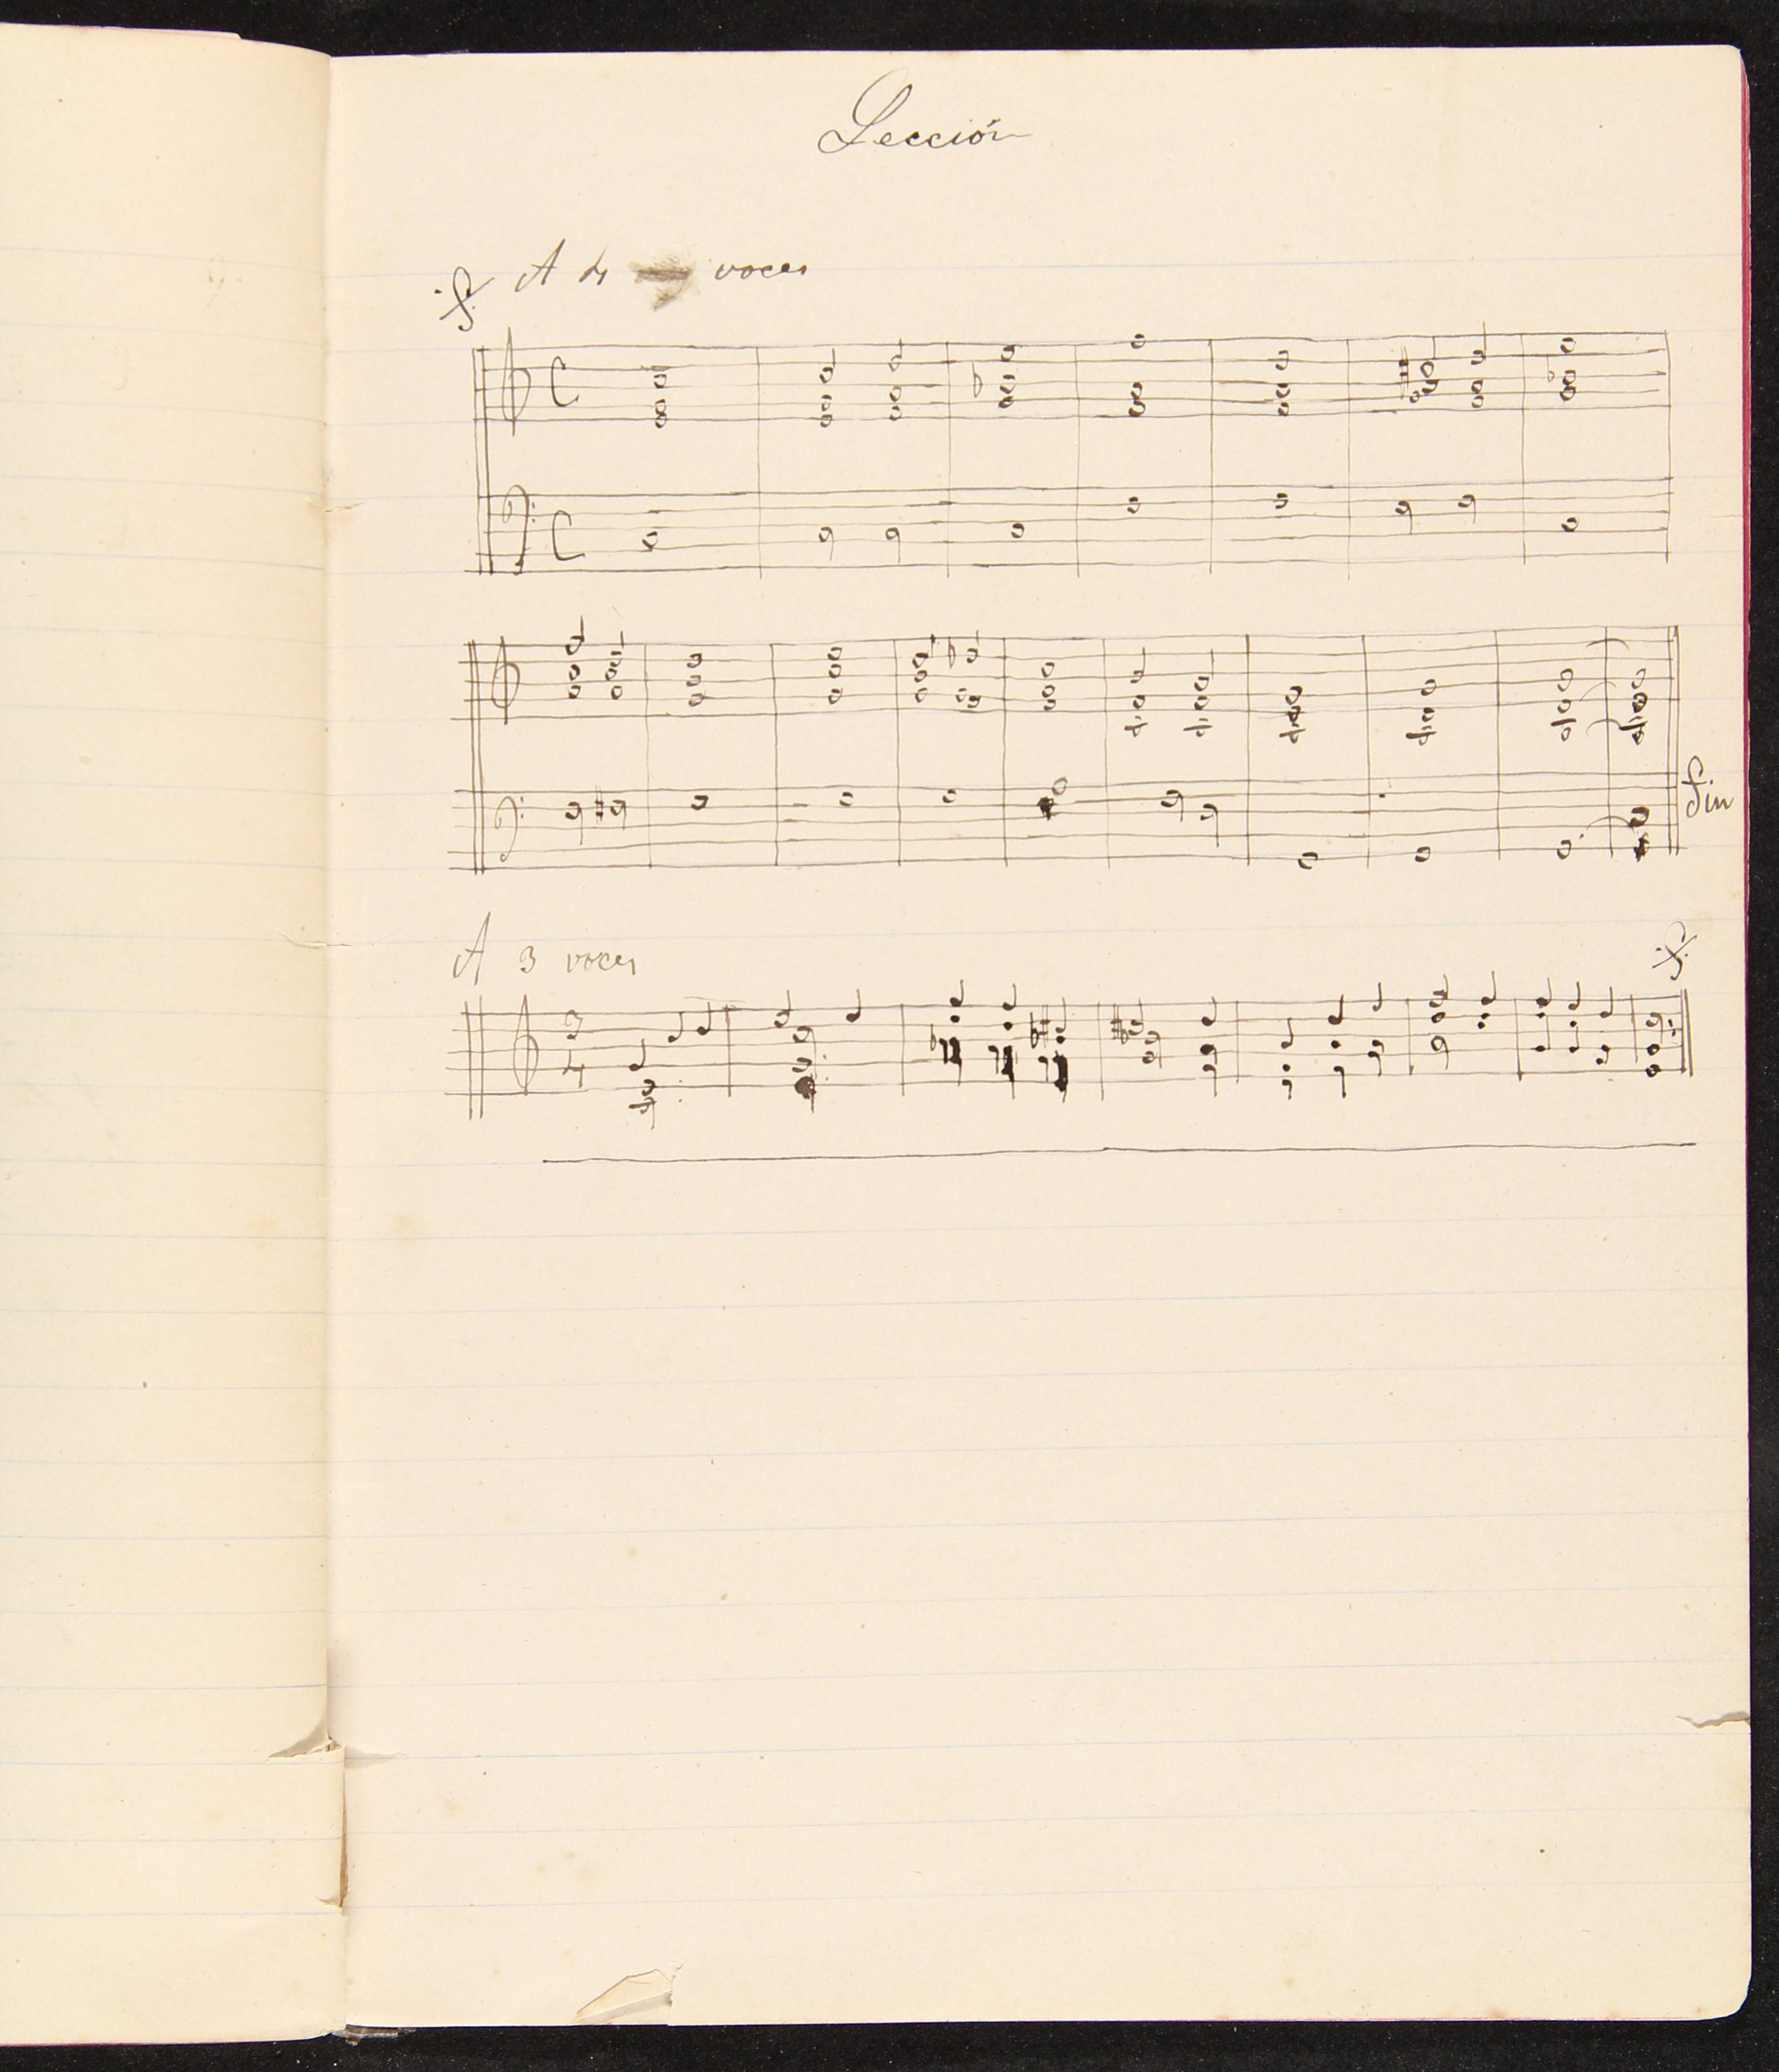 Lección
A 4 voces
C
C
Fin
A 3 voces
3
4